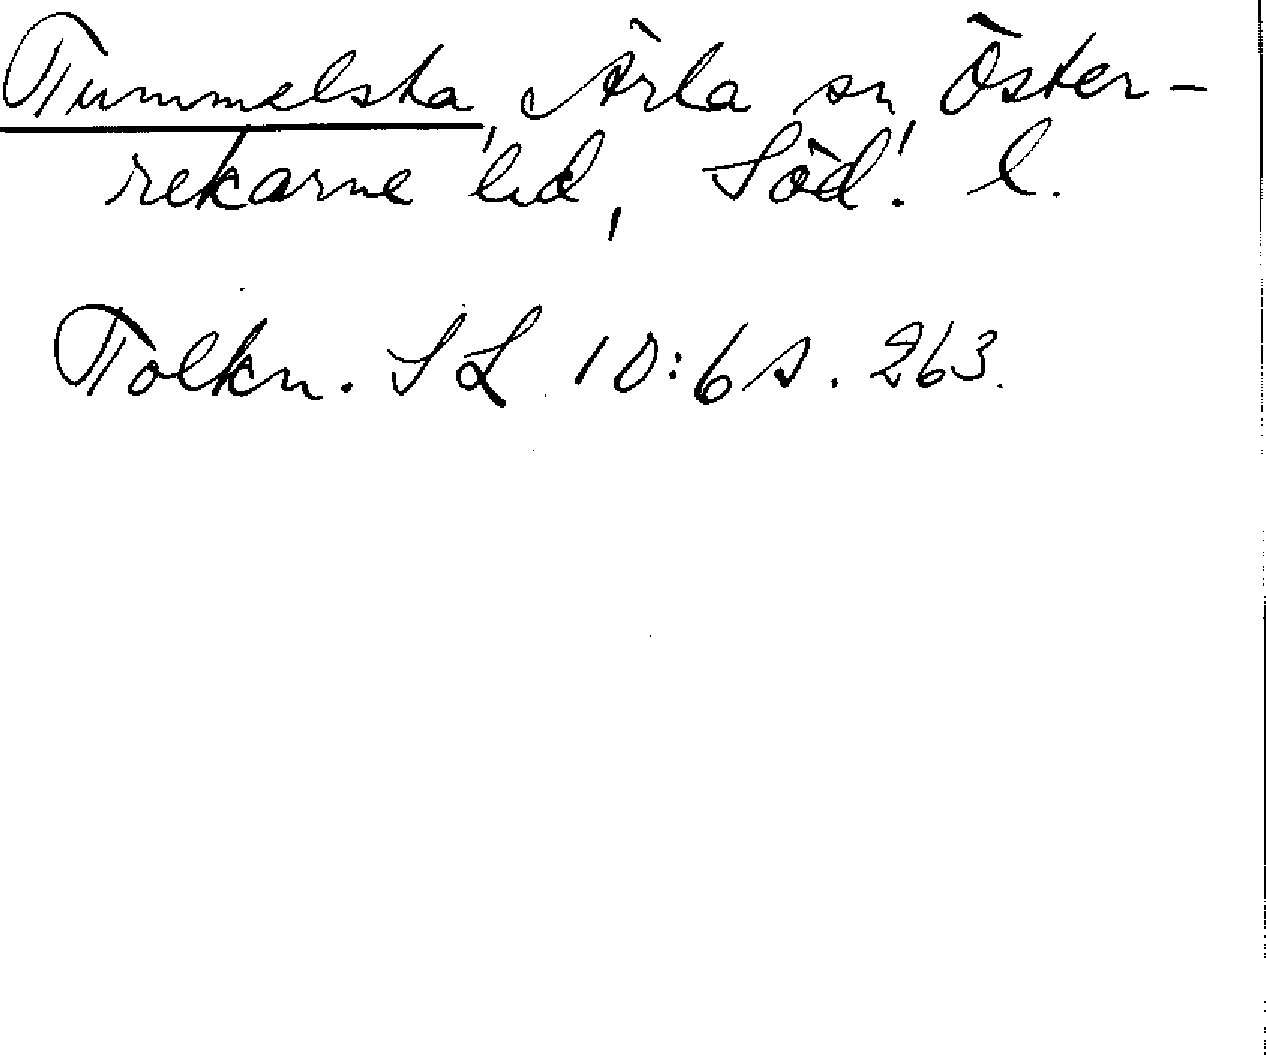 Tummelsta, Ärla sn, Öster-
rekarne hd, Söd. l.
Tolkn. SL 10:6 s. 263.